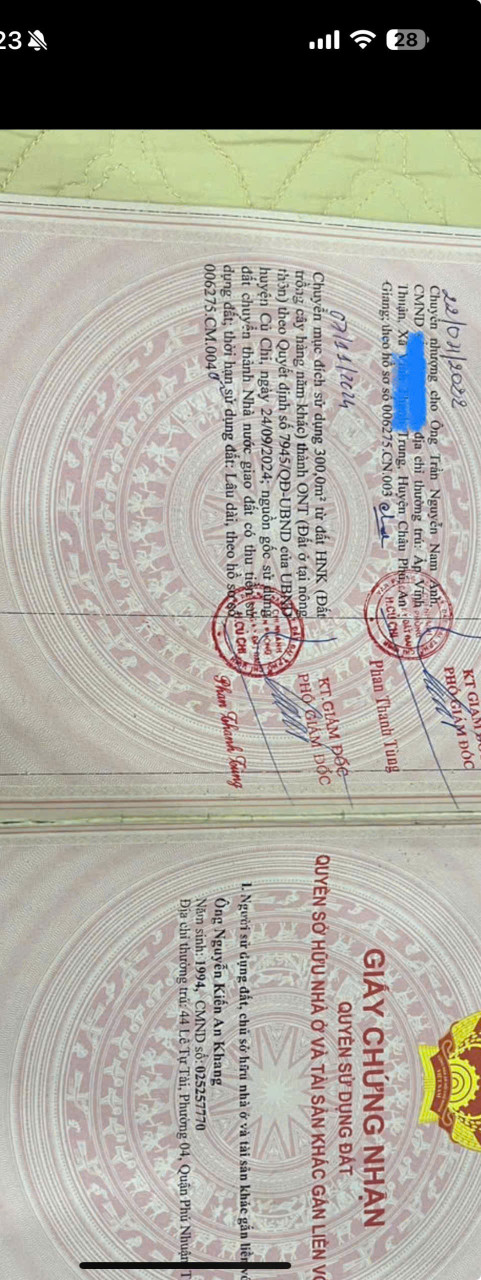 23
28
22/02/2022
Chuyển nhượng cho Ông Trần Nguyễn Nam Anh,
CMND địa chỉ thường trú: Ấp Vĩnh
Thuận, Xã Trung, Huyện Châu Phú, An
Giang; theo hồ sơ số 006275.CN.003
KT.GIÁM
PHÓ GIÁM ĐỐC
H.CỦ CHI
Phan Thanh Tùng
07/11/2024
Chuyển mục đích sử dụng 300,0m² từ đất HNK (Đất
trồng cây hàng năm khác) thành ONT (Đất ở tại nông
thôn) theo Quyết định số 7945/QĐ-UBND của UBND
huyện Củ Chi, ngày 24/09/2024; nguồn gốc sử dụng
đất chuyển thành Nhà nước giao đất có thu tiền sử
dụng đất; thời hạn sử dụng đất: Lâu dài, theo hồ sơ số
006275.CM.004
KT.GIÁM ĐỐC
PHÓ GIÁM ĐỐC
H.CỦ CHI
Phan Thanh Tùng
VIỆT NAM
GIẤY CHỨNG NHẬN
QUYỀN SỬ DỤNG ĐẤT
QUYỀN SỞ HỮU NHÀ Ở VÀ TÀI SẢN KHÁC GẮN LIỀN V
I. Người sử dụng đất, chủ sở hữu nhà ở và tài sản khác gắn liền
Ông Nguyễn Kiến An Khang
Năm sinh: 1994, CMND số: 025257770
Địa chỉ thường trú: 44 Lê Tự Tài, Phường 04, Quận Phú Nhuận, T